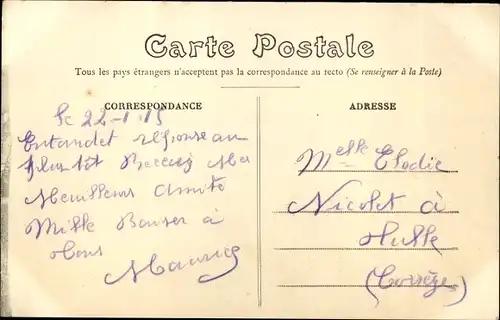 Carte Postale
Tous les pays étrangers n'acceptent pas la correspondance au recto (Se renseigner à la Poste)
CORRESPONDANCE
le 22-1-15
Entandet réponse au
plus tôt Recevez Mes
Meilleurs Amitié
Mille Baiser à
Maurice
ADRESSE
Melle Elodie
Nicolet à
(Corrèze)